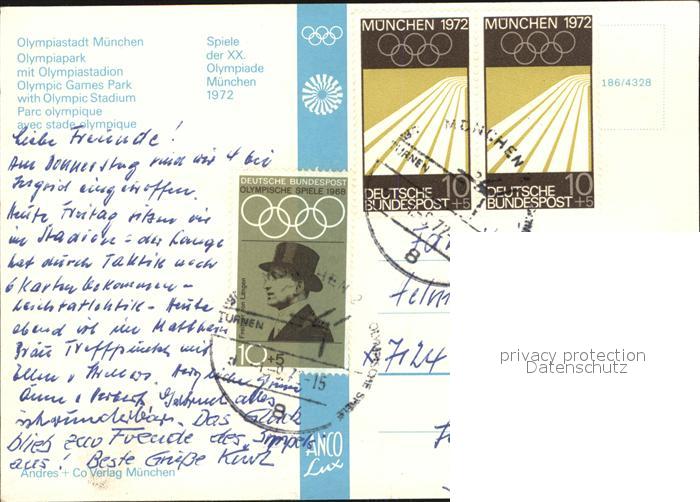 Olympiastadt München
Olympiapark
mit Olympiastadion
Olympic Games Park
with Olympic Stadium
Parc olympique
avec stade olympique
Spiele
der XX.
Olympiade
München
1972
MÜNCHEN 1972
DEUTSCHE
BUNDESPOST
10
+5
MÜNCHEN 1972
DEUTSCHE
BUNDESPOST
10
+5
186/4328
MÜNCHEN
TURNEN
8
DEUTSCHE BUNDESPOST
OLYMPISCHE SPIELE 1968
Freiherr von Langen
10+5
TURNEN
-15
8
OLYMPISCHE SPIELE
Liebe Freunde!
Am Donnerstag sind wir 4 bei
Ingrid eingetroffen.
Heute Freitag sitzen wir
im Stadion - der Lange
hat durch Taktik noch
6 Karten bekommen -
Leichtathletik - Heute
abend ist im
Bräu Treffpunkt mit
Herzliche Grüße
Anne
alles
wunderbar. Das Glück
blieb zur Freude des
aus! Beste Grüße Kurt
X7124
privacy protection
Datenschutz
ANCO
Lux
Andres + Co Verlag München